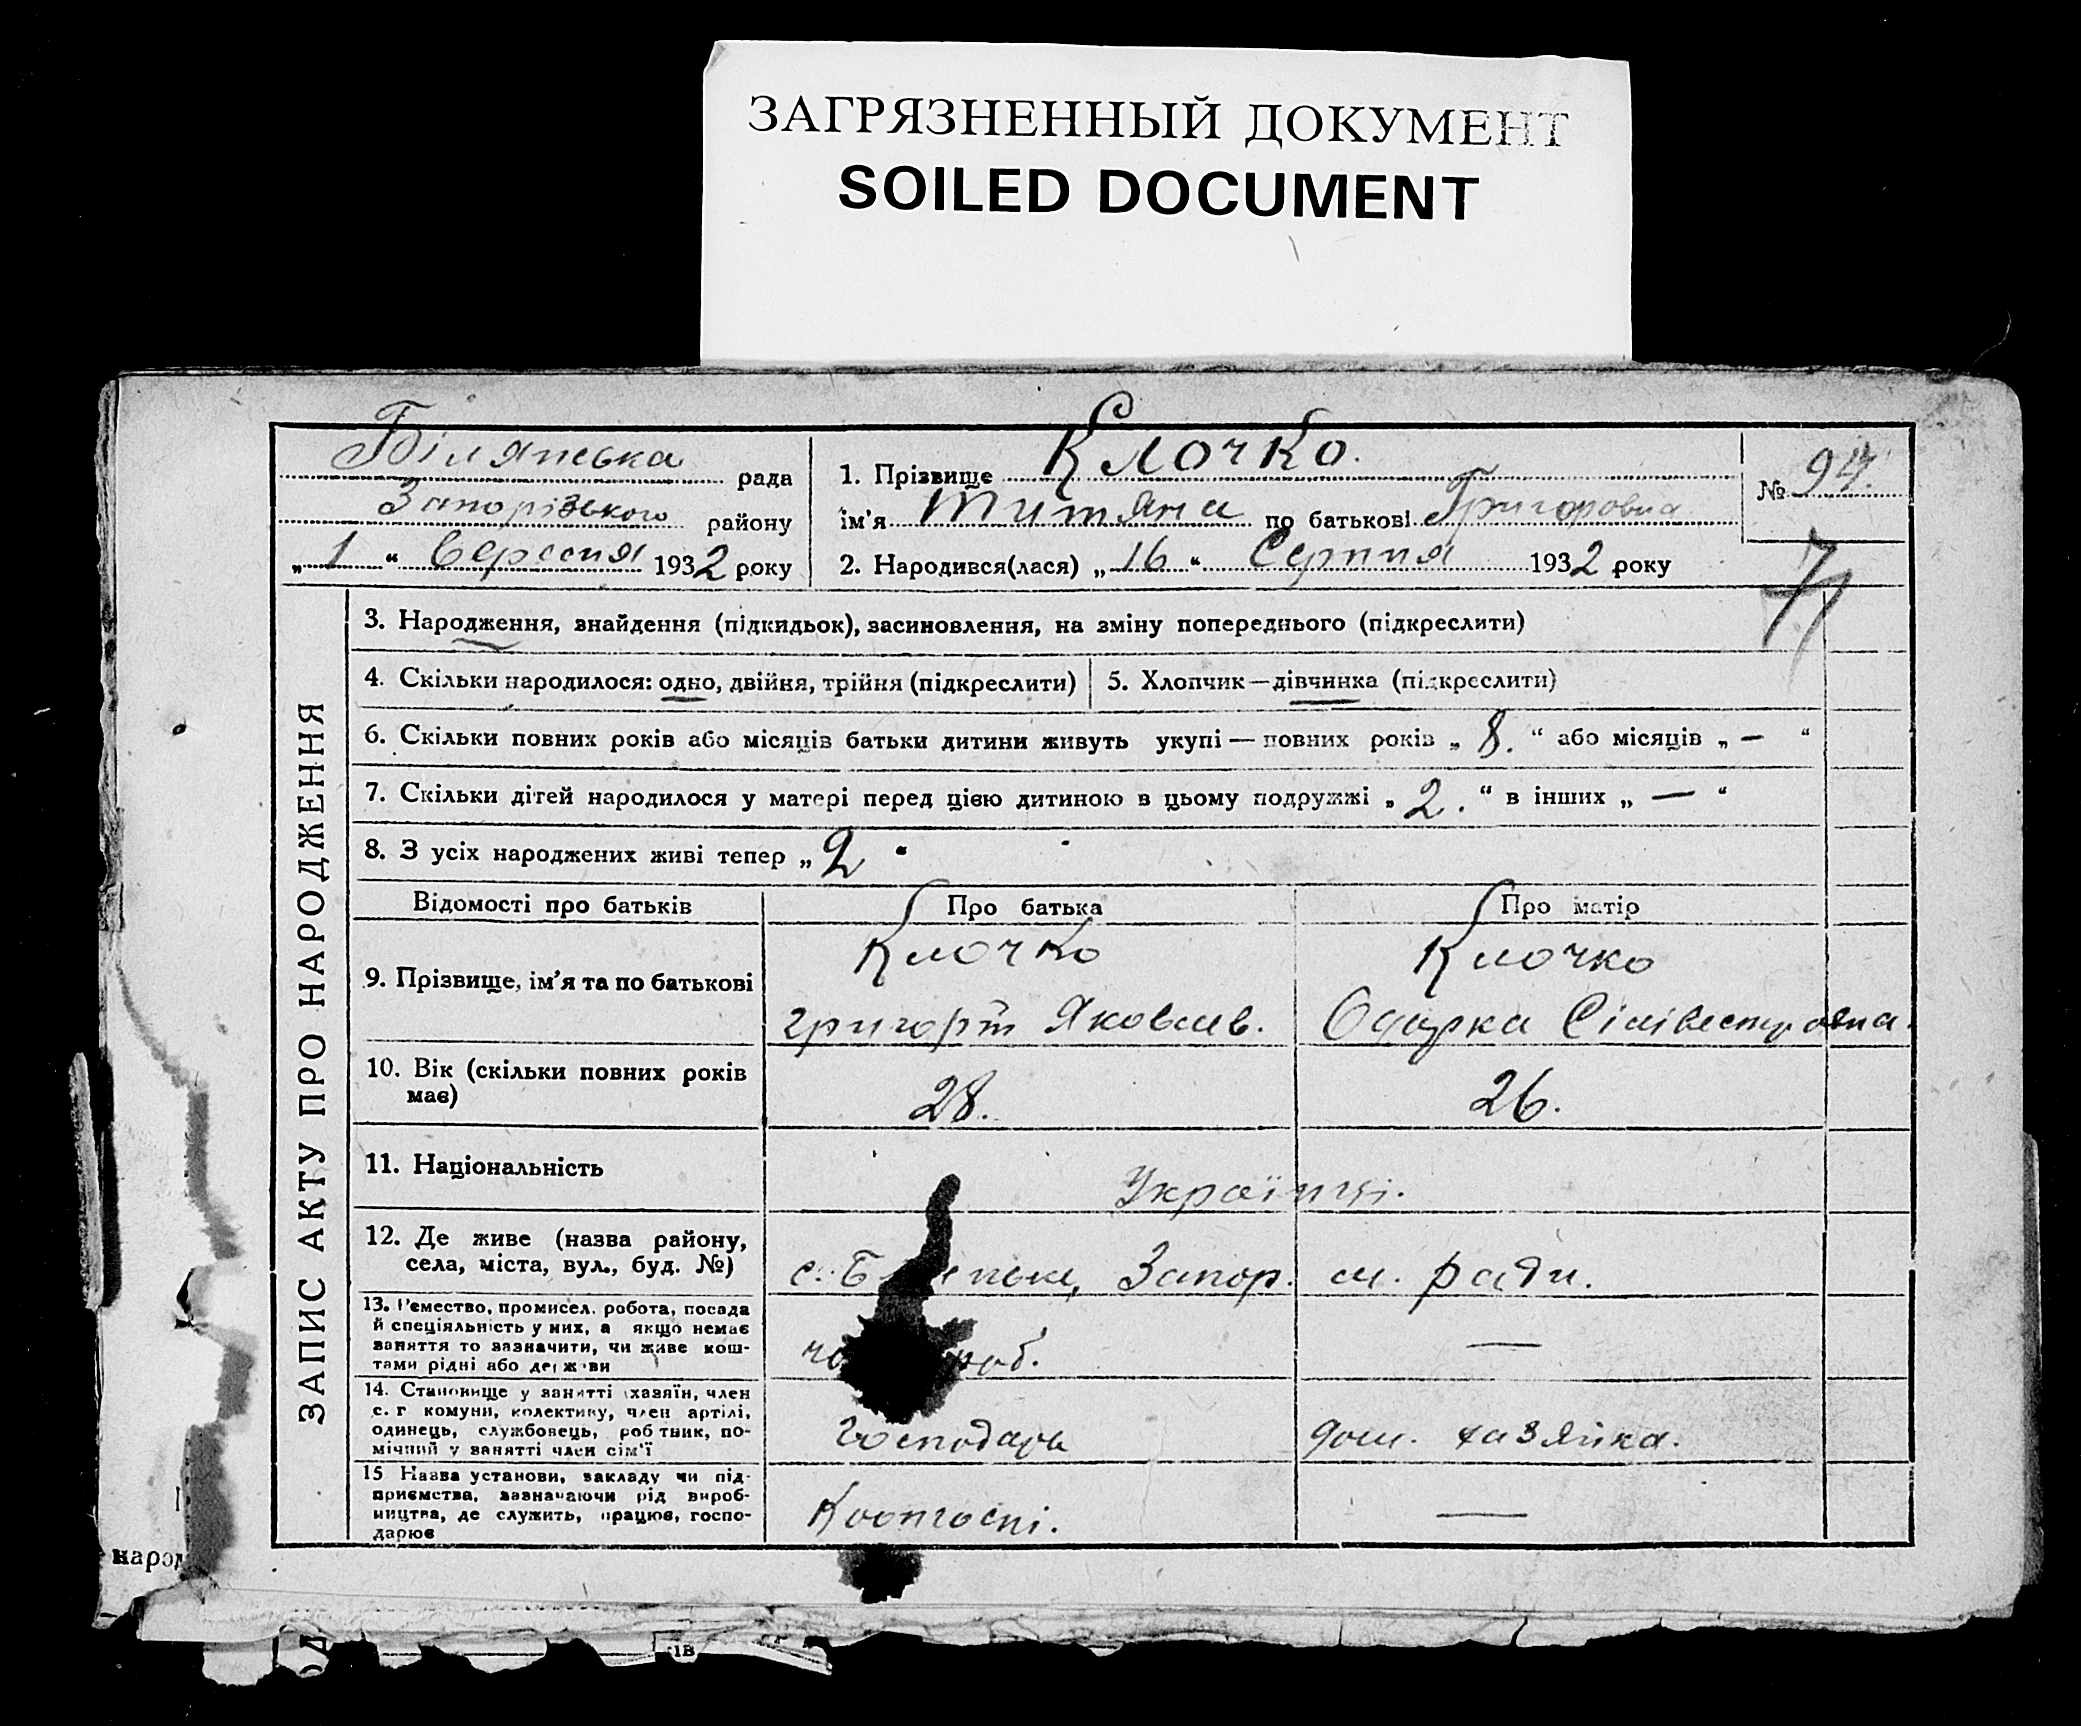 ЗАГРЯЗНЕННЫЙ ДОКУМЕНТ
SOILED DOCUMENT
Білянська рада
Запорізького району
„ 1 “ Вересня 1932 року
1. Прізвище Клочко.
ім'я Титяна по батькові Григоровна
2. Народився(лася) „ 16 “ Серпня 1932 року
№ 94.
ЗАПИС АКТУ ПРО НАРОДЖЕННЯ
3. Народження, знайдення (підкидьок), засиновлення, на зміну попереднього (підкреслити)
4. Скільки народилося: одно, двійня, трійня (підкреслити) 5. Хлопчик—дівчинка (підкреслити)
6. Скільки повних років або місяців батьки дитини живуть укупі — повних років „ 8. “ або місяців „ — “
7. Скільки дітей народилося у матері перед цією дитиною в цьому подружжі „ 2. “ в інших „ — “
8. З усіх народжених живі тепер „ 2 “
Відомості про батьків Про батька Про матір
9. Прізвище, ім'я та по батькові
Клочко Клочко
Григорій Яковлев. Одарка Сілівестровна.
10. Вік (скільки повних років
має) 28. 26.
11. Національність Українці.
12. Де живе (назва району,
села, міста, вул., буд. №) с. Запор. м. ради.
13. Ремество, промисел, робота, посада
й спеціяльність у них, а якщо немає
заняття то зазначити, чи живе кош-
тами рідні або держави —
14. Становище у занятті (хазяїн, член
с. г комуни, колективу, член артілі,
одинець, службовець, робтник, по-
мічний у занятті член сім'ї Господарь дом. хазяйка.
15 Назва установи, закладу чи під-
приємства, зазначаючи рід вироб-
ництва, де служить, працює, госпо-
дарює —
народ
ів